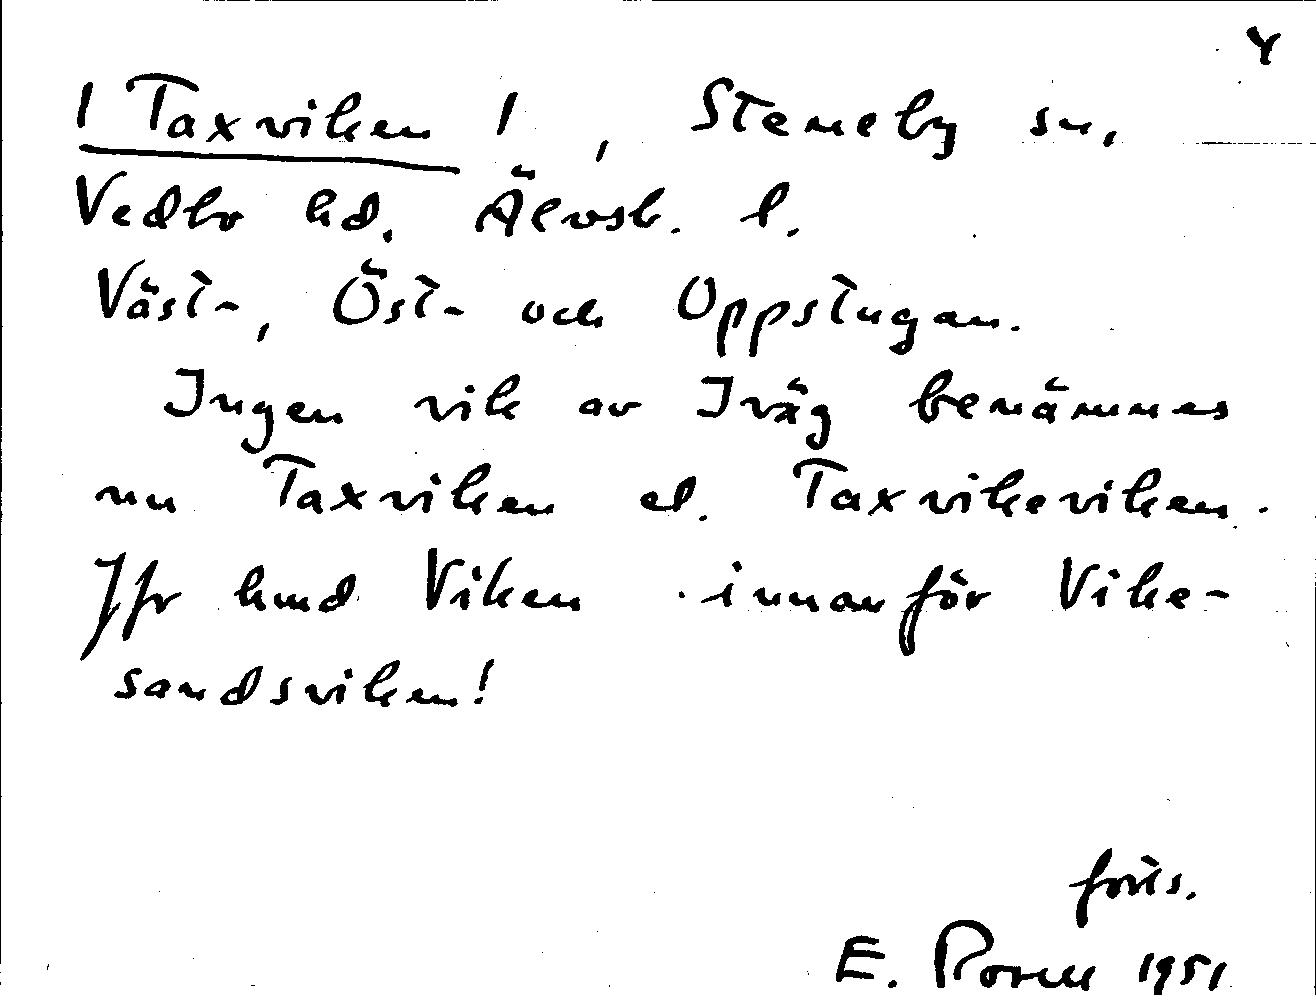 4
| Taxviken |, Steneby sn,
Vedbo hd. Älvsb. l.
Väst-, Öst- och Oppstugan.
Ingen vik av Iväg benämnes
nu Taxviken el. Taxvikeviken.
Jfr hmd Viken innanför Vike-
sandsviken!
forts.
E. 1951